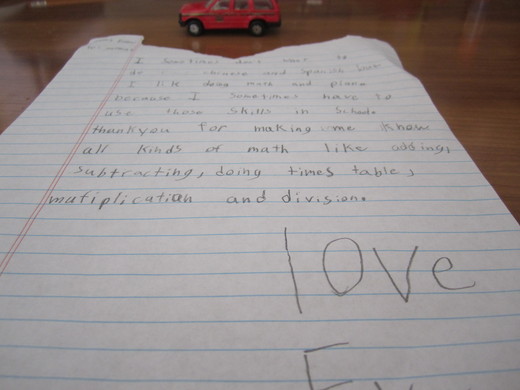 I Sometimes don't want to
do chinese and Spanish but
I like doing math and piano
because I sometimes have to
use those skills in School.
thankyou for making me know
all kinds of math like adding,
subtracting, doing times table,
mutiplication and division.
love